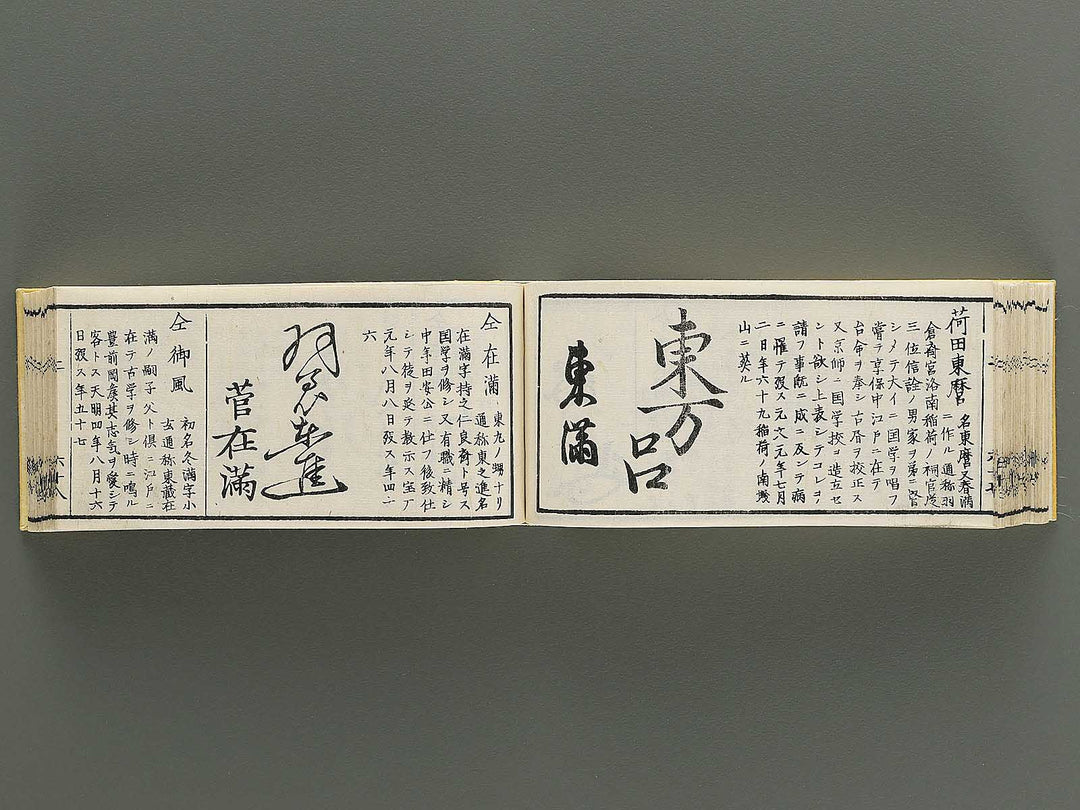 荷田東麿 名東麿又春満
ニ作ル通称羽
倉斎宮洛南稲荷ノ祠官従
三位信詮ノ男家ヲ弟ニ譲
シメテ大イニ国学ヲ唱フ
嘗テ享保中江戸ニ在テ
台命ヲ奉シ古暦ヲ校正ス
又京師ニ国学校ヲ造立セ
ント欲シ上表シテコレヲ
請フ事既ニ成ニ及ンテ病
ニ罹テ歿ス元文元年七月
二日年六十九稲荷ノ南
山ニ葬ル
東万呂
東満
仝在満 東九ノ甥ナリ
通称東之進名
在満字持之仁良斎ト号ス
国学ヲ修シ又有職ニ精シ
中年田安公ニ仕フ後致仕
シテ徒ヲ聚テ教示ス宝
元年八月八日歿ス年四十
六
東之進
菅在満
仝御風 初名冬満字小
玄通称東蔵在
満ノ嗣子父ト倶ニ江戸ニ
在テ古学ヲ修シ時ニ鳴ル
豊前岡侯其志気ヲ愛シテ
客トス天明四年八月十六
日歿ス年五十七